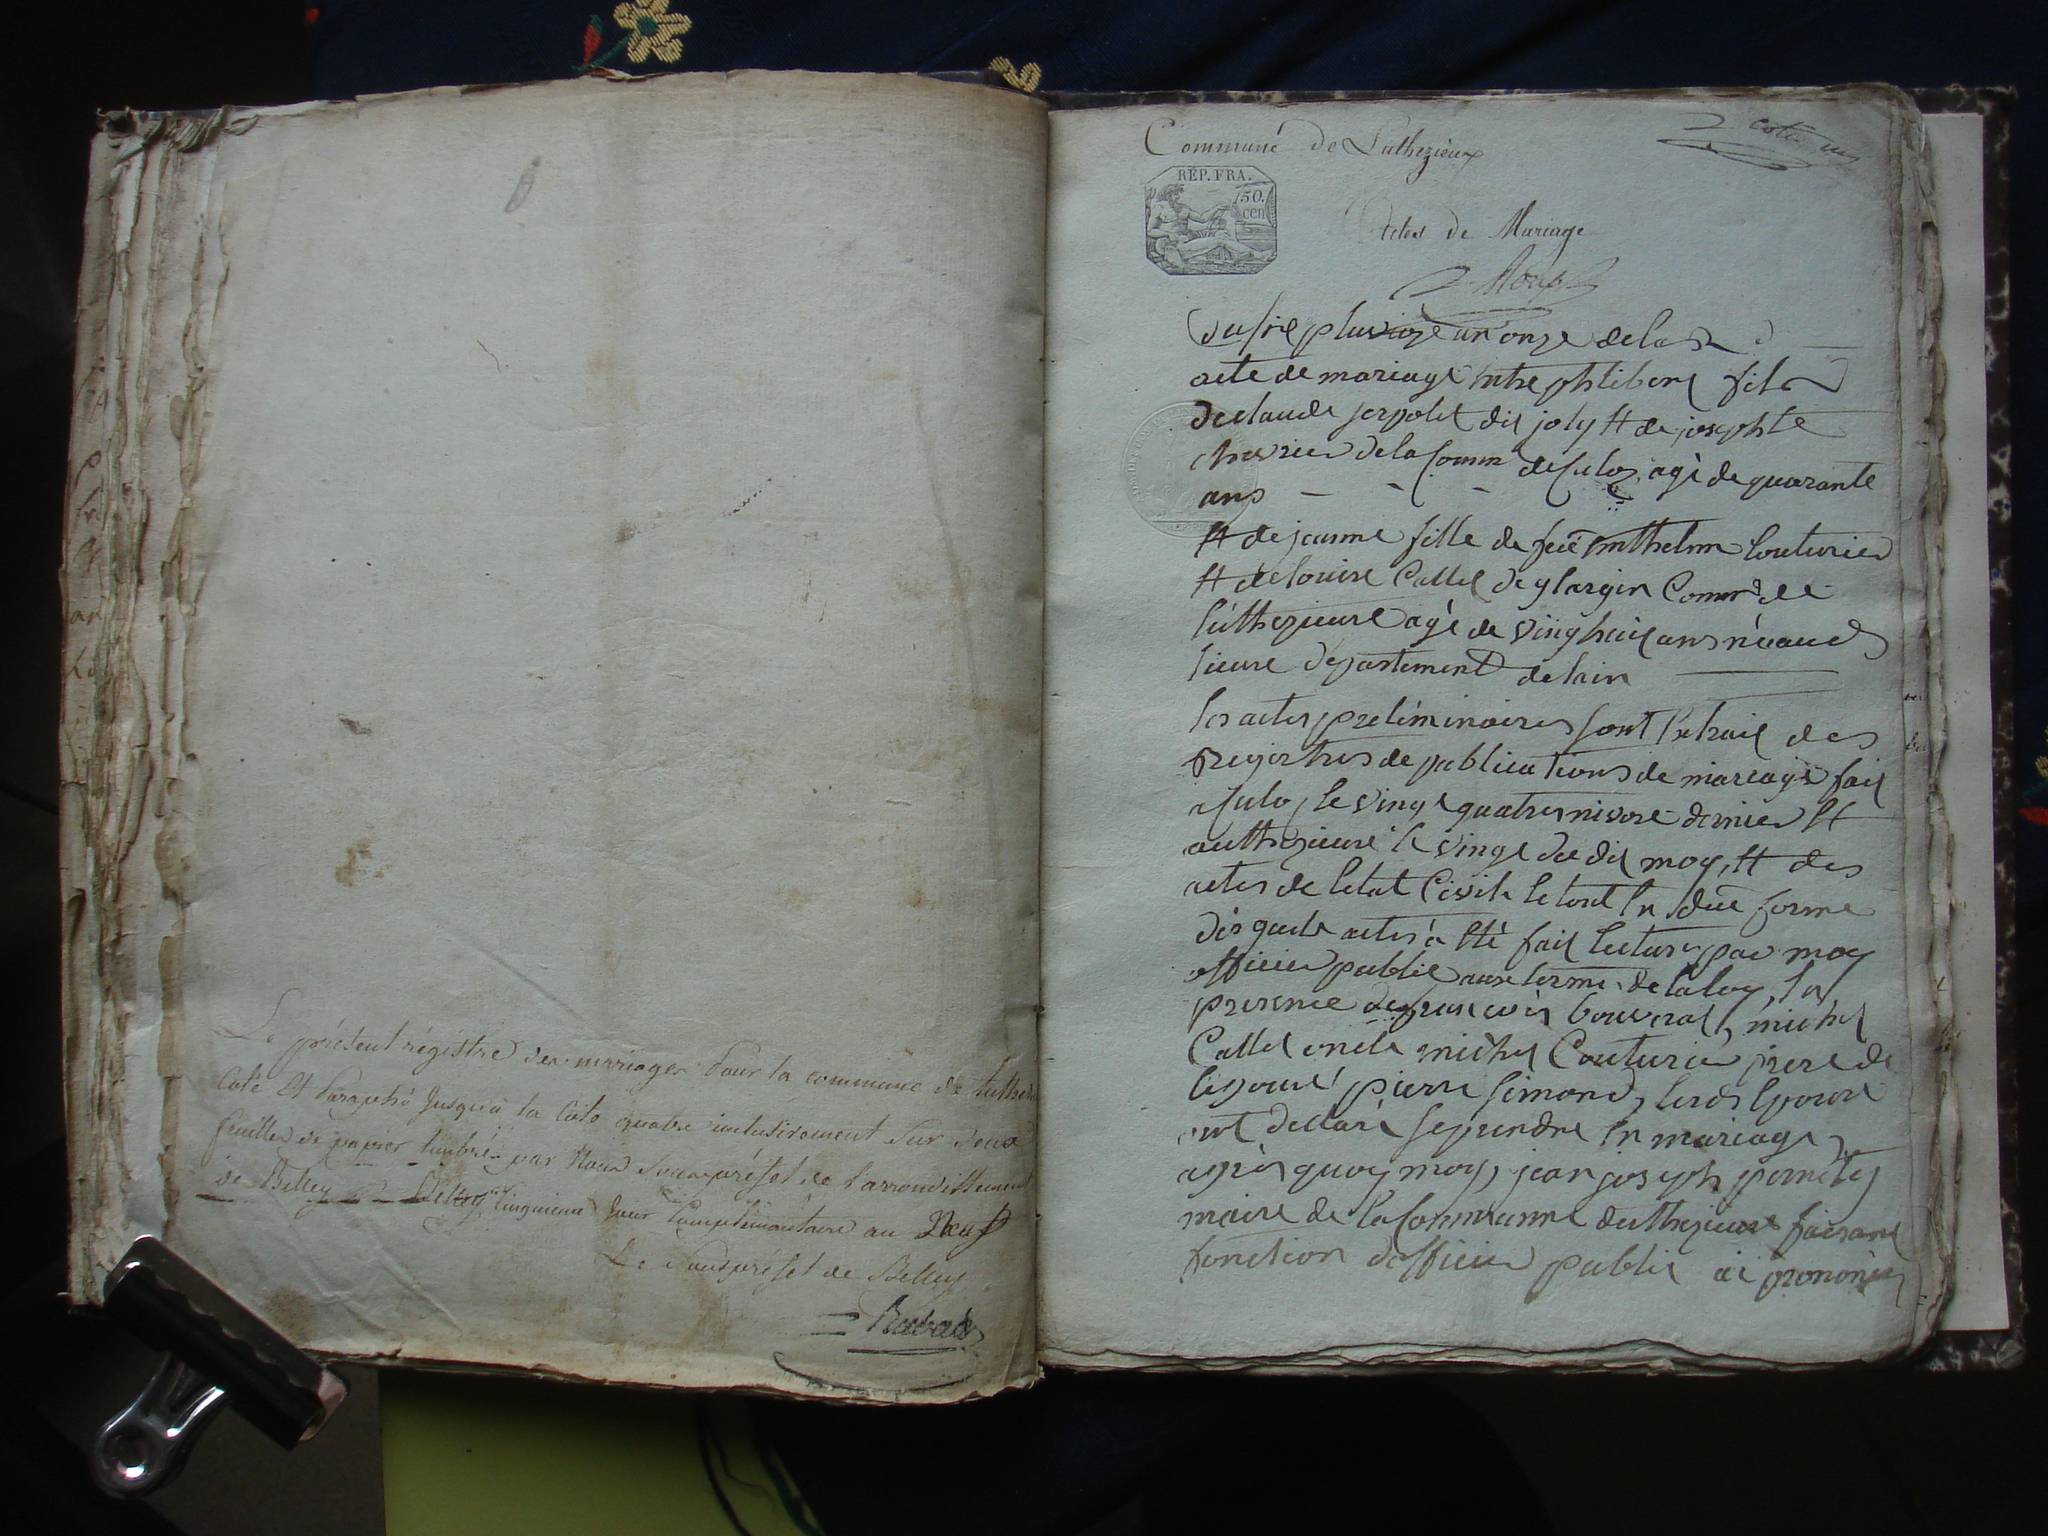 Le présent régistre des mariages pour la commune de Luthe
Coté et Paraphé Jusqu'à la Cote quatre inclusivement sur deux
feuilles de papier timbré par Nous Sous-préfet de l'arrondissement
de Belley Belley cinquieme Jour Complémentaire an Neuf
Le Sousprefet de Belley
Commune de Luthezieux
cote un
REP. FRA.
50.
cen
Actes de Mariage
Roux
pluvioze an onze de la R
acte de mariage entre philibert fils
de claude serpolet dit joly et de josephte
chevrier de la Comm de Culoz, agé de quarante
ans
et de jeanne fille de feu enthelme Couturier
et de louise Callet de Comm de
luthezieux agé de vingt huit ans
lieux département de lain
les actes préliminaires sont Extrait des
Registres de publications de mariage fait
a Culoz le vingt quatre nivose dernier Et
a uthezieux le vingt du dit moy, et des
actes de letat Civile le tout En due forme
des quels actes a Eté fait lecture par moy
officier public aux terme de la loy, En
presence de francois bouverat, michel
Callet oncle michel Couturier frere de
lepouse pierre Simond, lesds Epoux
ont declaré se prendre En mariage,
après quoy moy jean joseph
maire de la Commune duthezieux faisant
fonction dofficier public ai prononcé